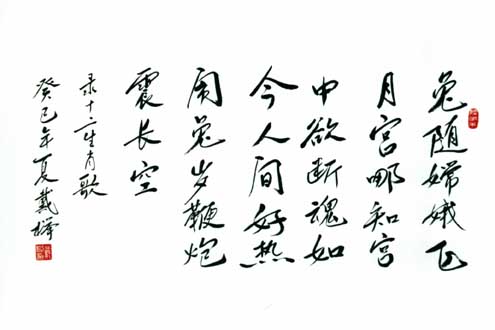 兔随嫦娥飞
月宫哪知宫
中欲断魂如
今人间好热
闹兔岁鞭炮
震长空
录十二生肖歌
癸巳年夏戴